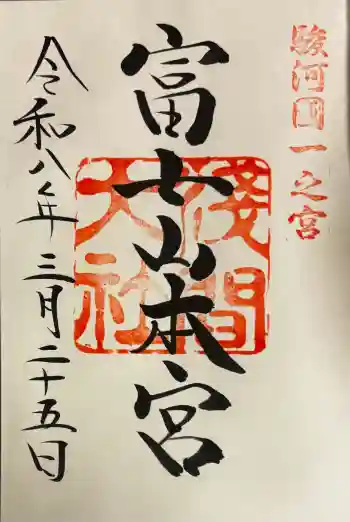 駿河國一之宮
富士山本宮
淺間
大社
令和八年三月二十五日